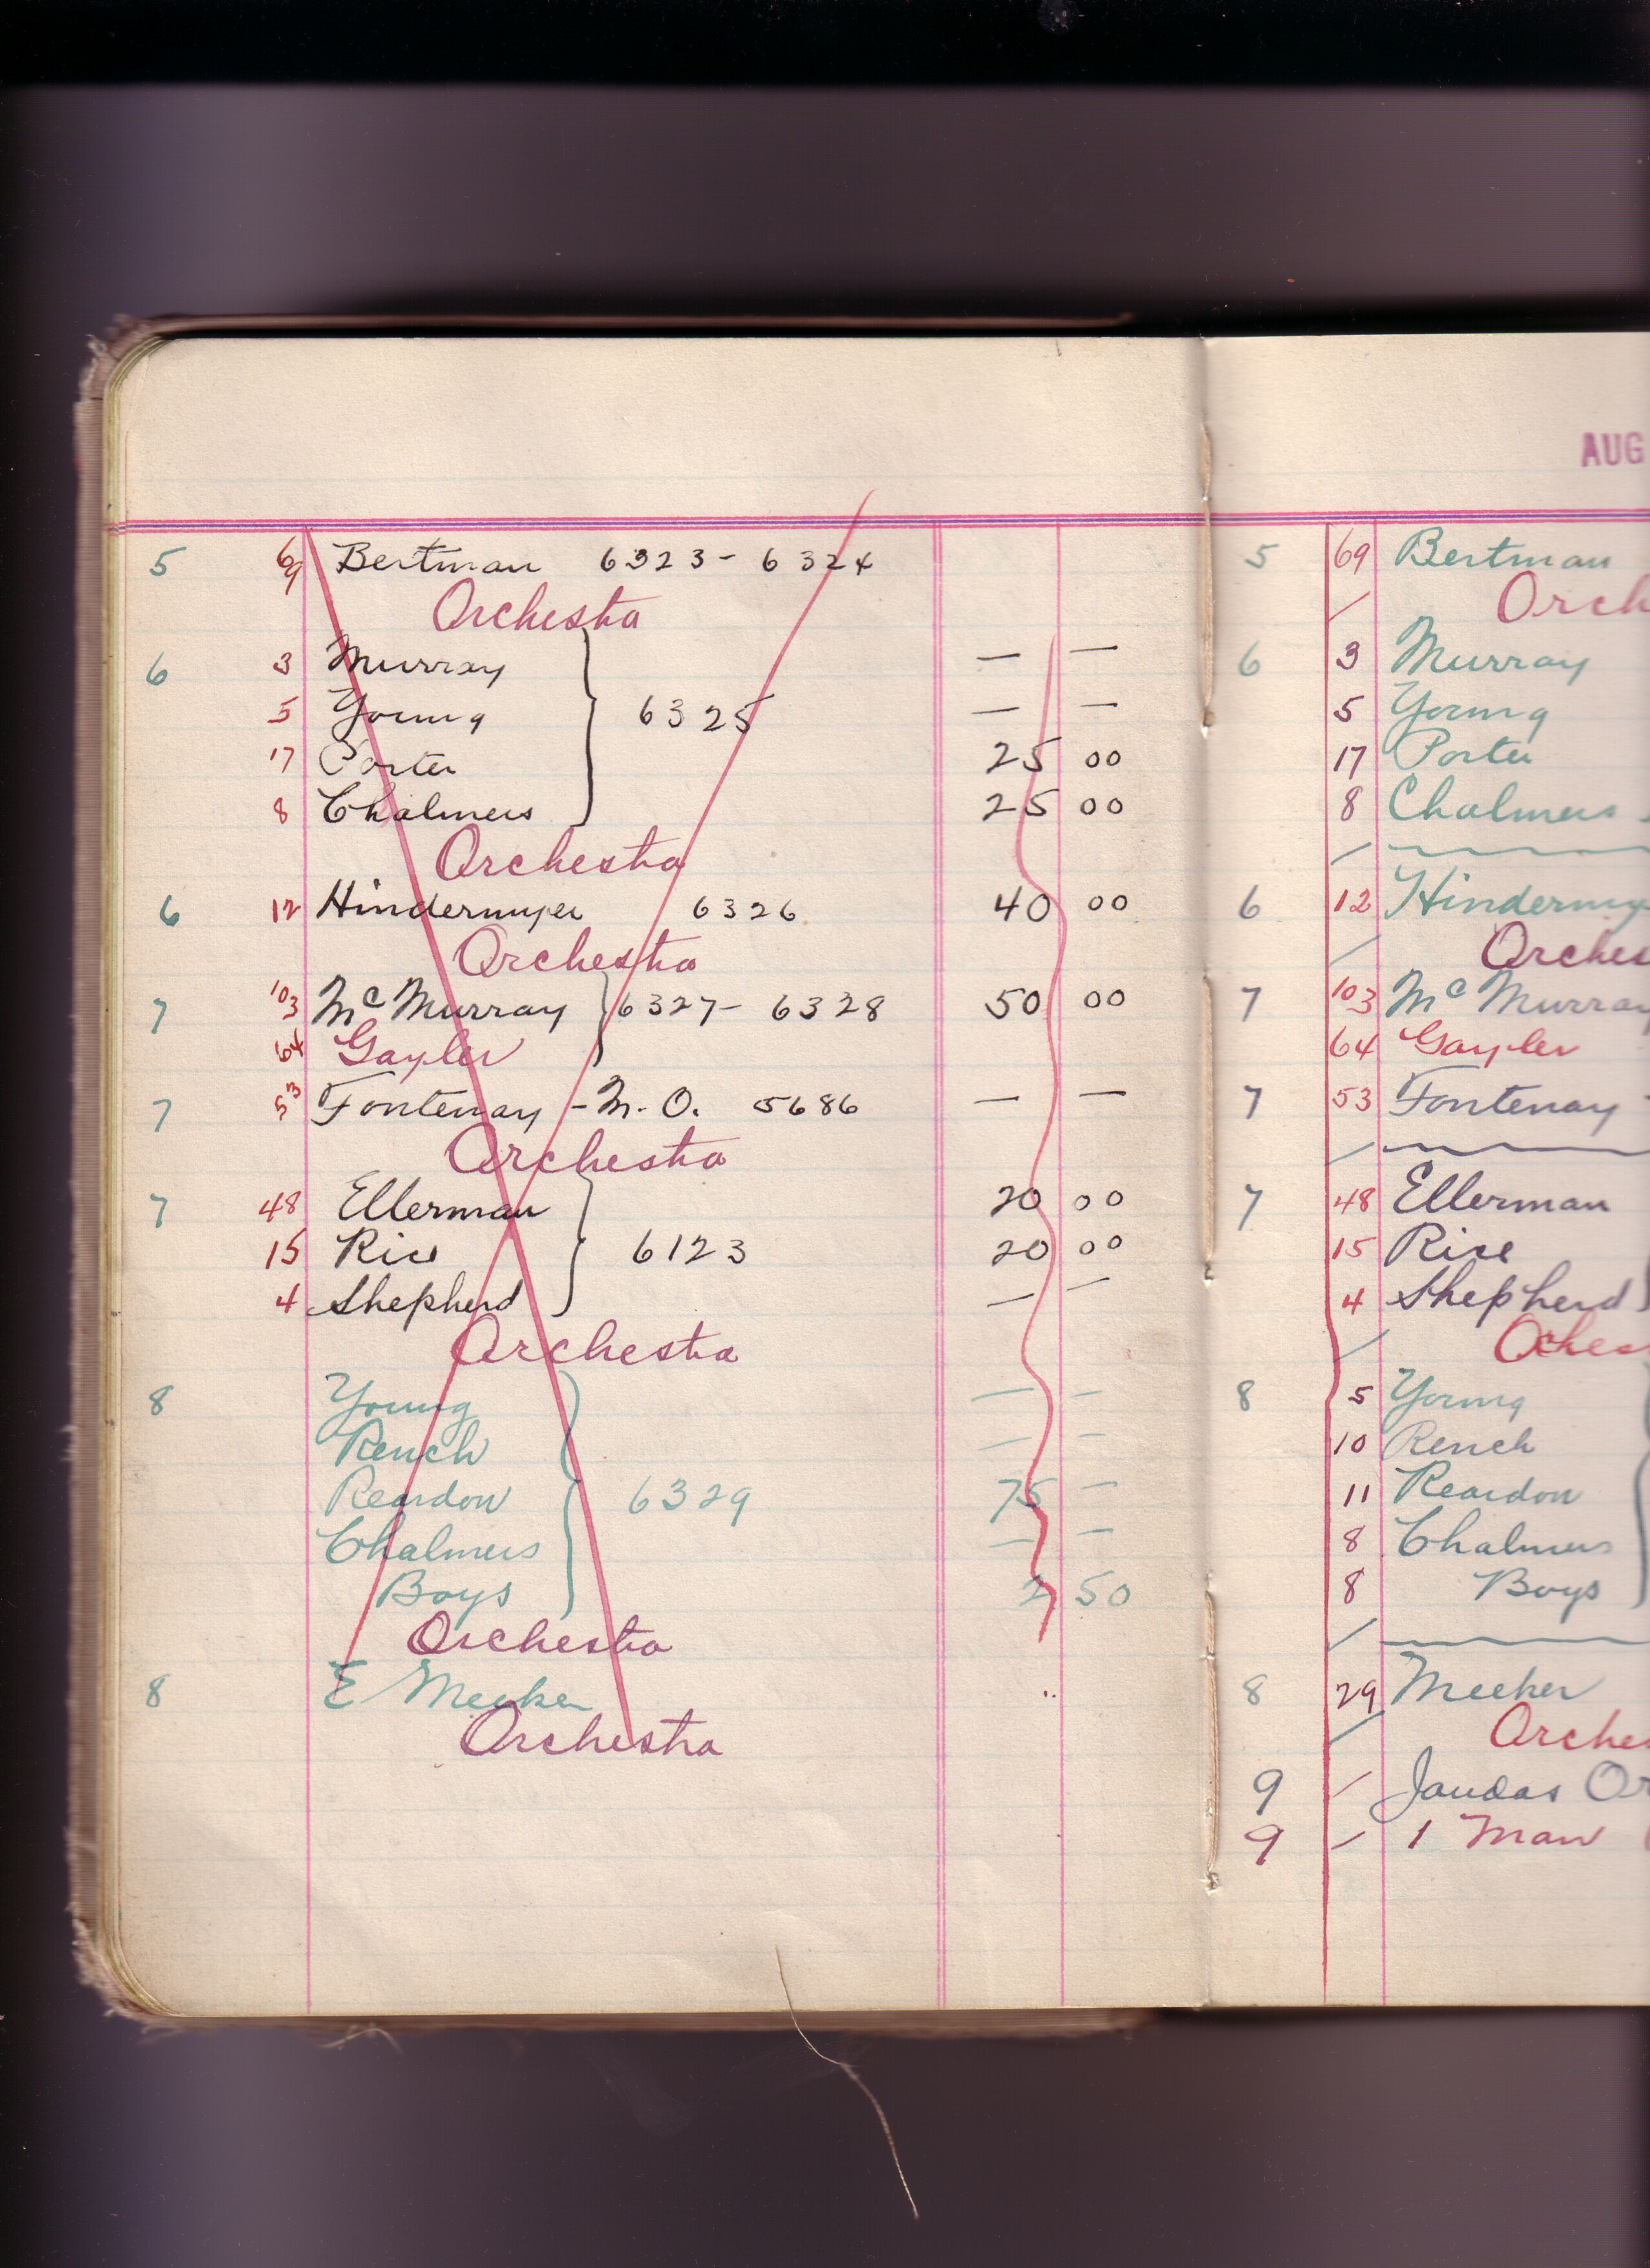 5 69 Bertman 6323 - 6324
Orchestra
6 3 Murray — —
5 Young 6325 — —
17 Porter 25 00
8 Chalmers 25 00
Orchestra
6 12 Hindermyer 6326 40 00
Orchestra
7 103 McMurray 6327 - 6328 50 00
64 Gayler
7 53 Fontenay - M. O. 5686 — —
Orchestra
7 48 Ellerman 20 00
15 Rice 6123 20 00
4 Shepherd — —
Orchestra
8 Young — —
Rench — —
Reardon 6329 75 —
Chalmers — —
Boys 2 50
Orchestra
8 E Meeker
Orchestra
AUG
5 69 Bertman
Orch
6 3 Murray
5 Young
17 Porter
8 Chalmers
6 12 Hindermy
Orches
7 103 McMurray
64 Gayler
7 53 Fontenay
7 48 Ellerman
15 Rice
4 Shepherd
Oches
8 5 Young
10 Rench
11 Reardon
8 Chalmers
8 Boys
8 29 Meeker
Orches
9 Jaudas Or
9 1 Man